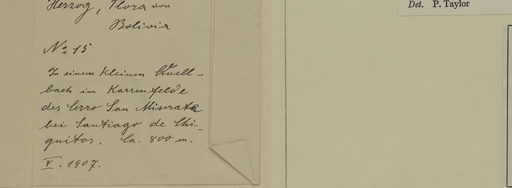 Herzog, Flora von
Bolivia
No 15
In einem kleinen Quell-
bach im Karrenfelde
des Cerro San Miserato
bei Santiago de Chi-
quitos. Ca. 800 m.
V. 1907.
Det. P. Taylor